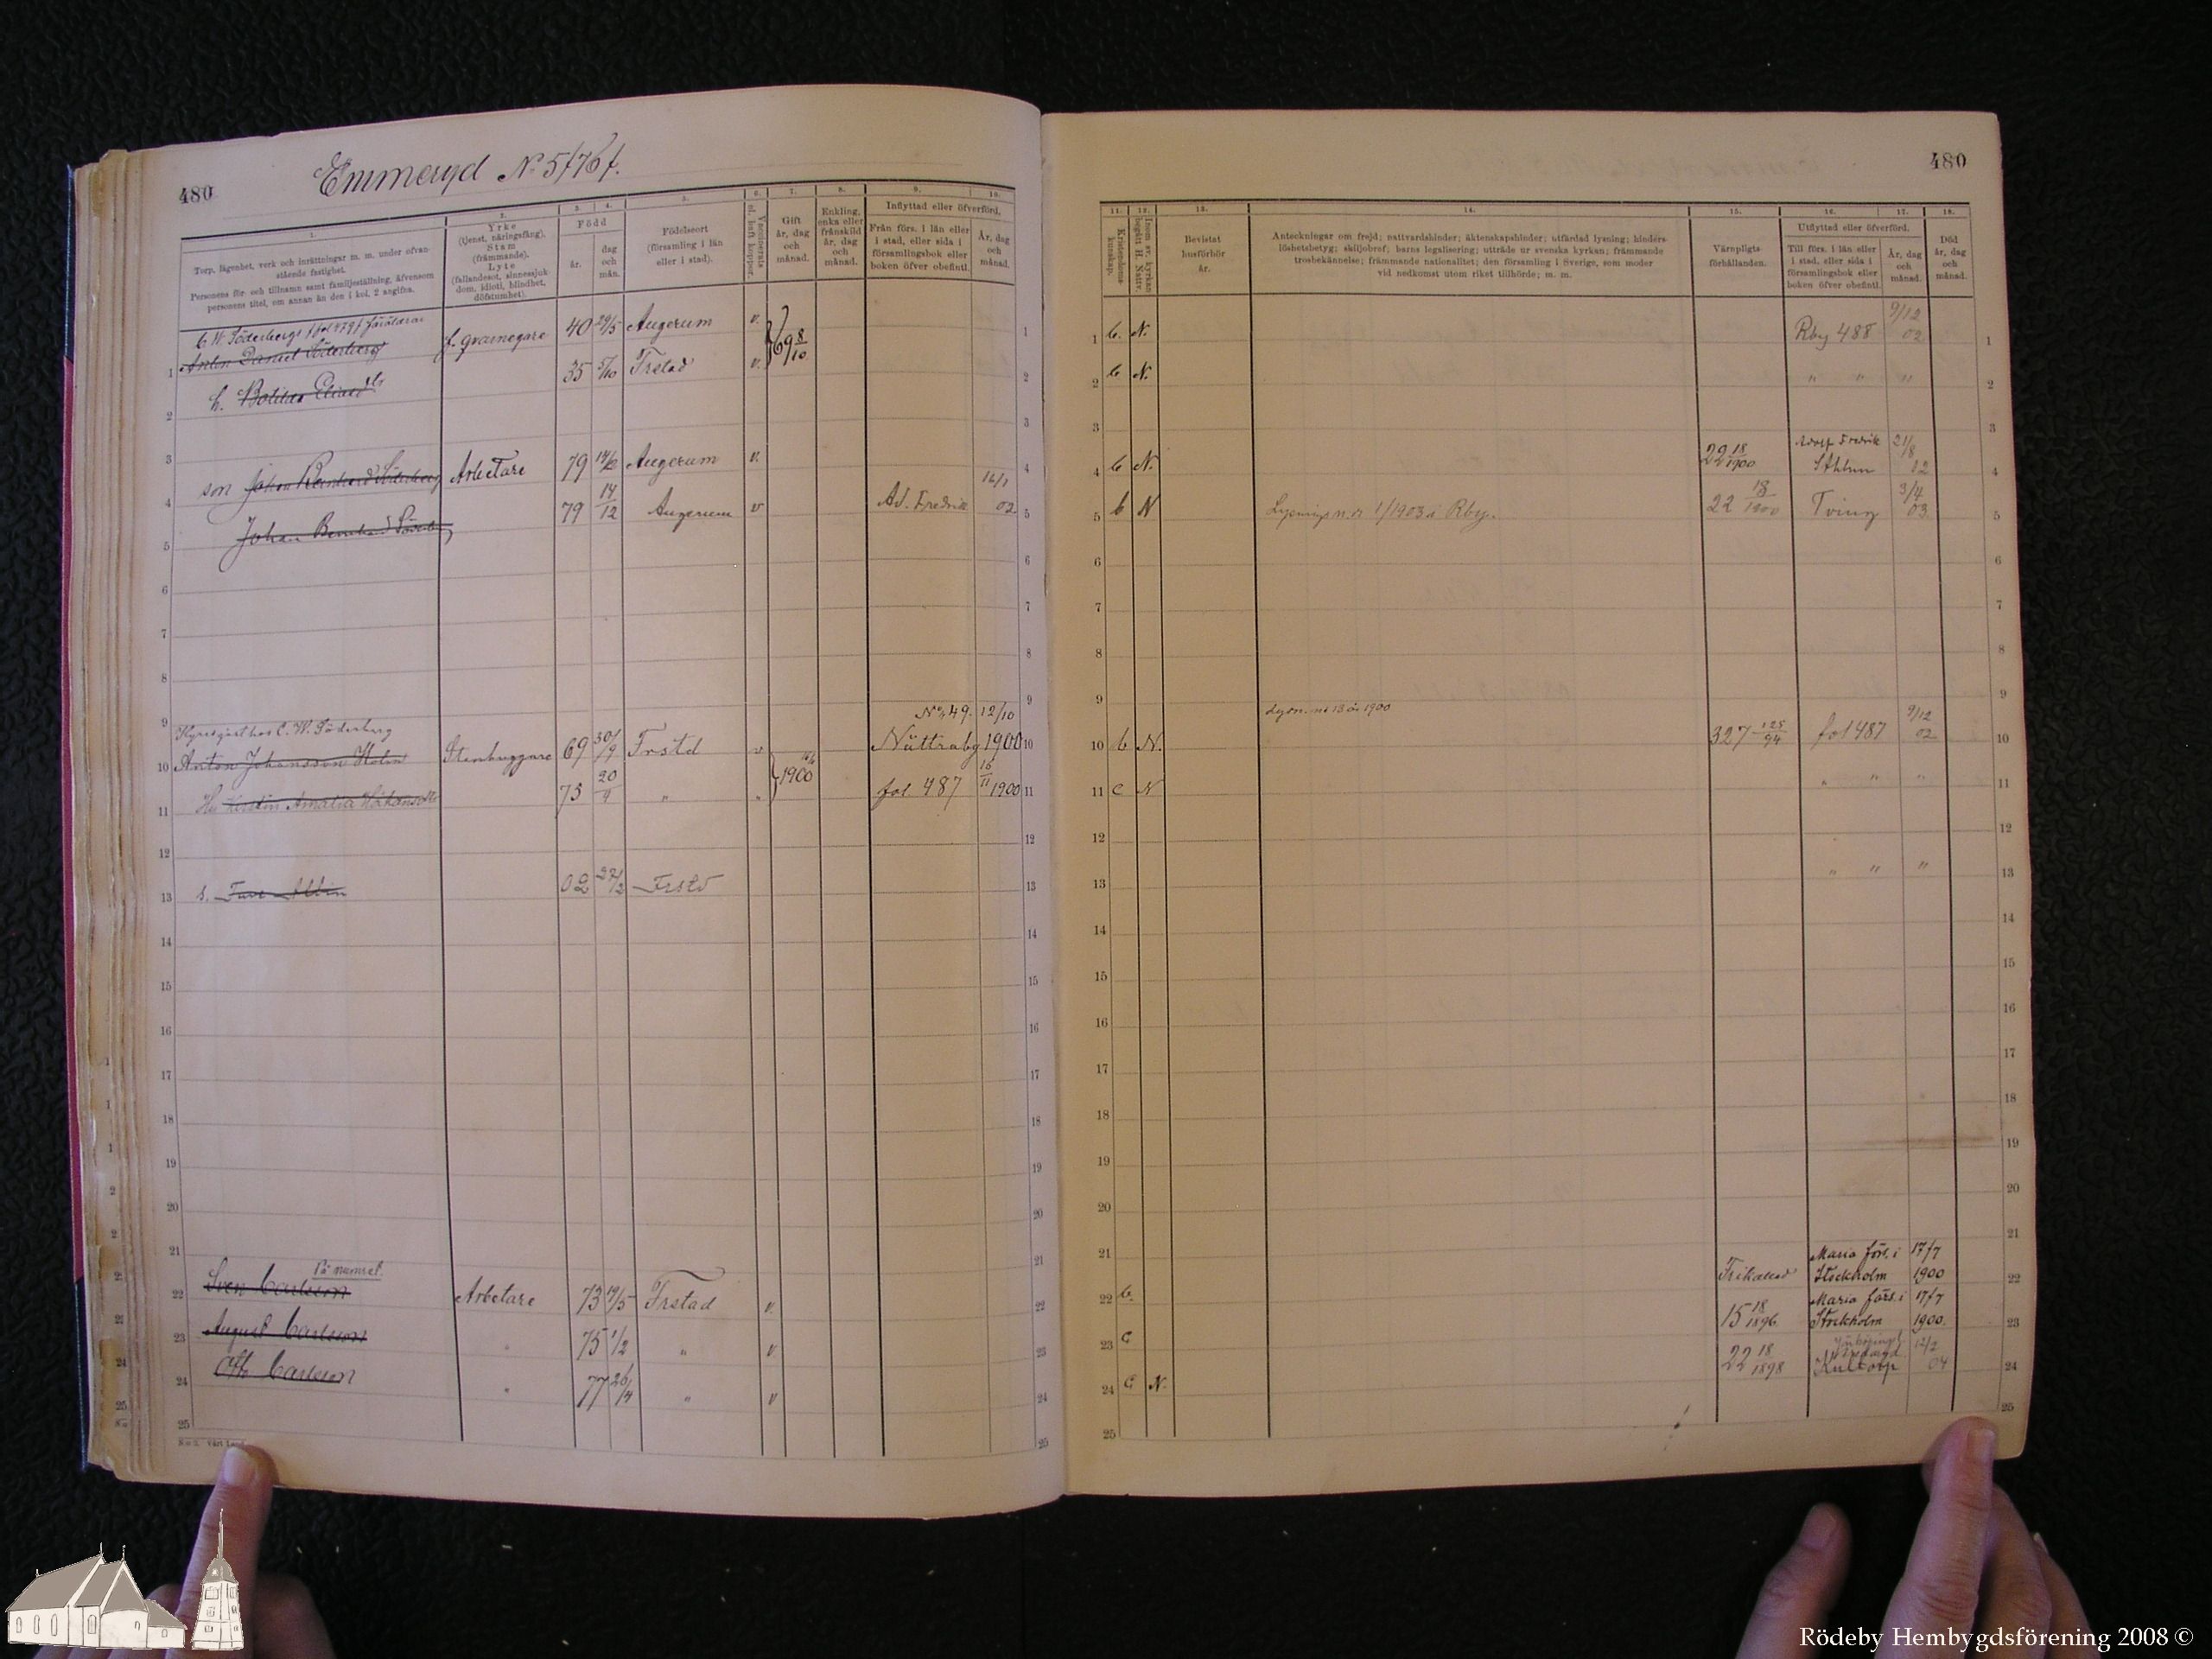 480
Emmeryd No 5/76 f.
1.
Torp, lägenhet, verk och inrättningar m. m. under ofvan-
stående fastighet.
Personens för- och tillnamn samt familjeställning, äfvensom
personens titel, om annan än den i kol. 2 angifna.
2.
Yrke
(tjenst, näringsfång).
Stam
(främmande).
Lyte
(fallandesot, sinnessjuk-
dom, idioti, blindhet,
döfstumhet).
3. 4.
Född
år.
dag
och
mån.
5.
Födelseort
(församling i län
eller i stad).
6.
Vaccinerats
el. haft koppor.
7.
Gift
år, dag
och
månad.
8.
Enkling,
enka eller
frånskild
år, dag
och
månad.
9. 10.
Inflyttad eller öfverförd.
Från förs. i län eller
i stad, eller sida i
församlingsbok eller
boken öfver obefintl.
År, dag
och
månad.
C. W. Söderbergs f. fol 479 f föräldrar
1 Anton Daniel Söderberg f. qvarnegare 40 29/5 Augerum v. 69 8/10 1
2 h. 35 5/10 Frstad v. 2
3 3
4 son Johan Bernhard Söderberg Arbetare 79 14/12 Augerum v. 4
5 Johan Bernhard Söderberg 79 14/12 Augerum v Ad. Fredrik 16/1 02 5
6
7
8
9 Hyresgäst hos C. W. Söderberg No 49. 12/10 9
10 Anton Johansson Holm Stenhuggare 69 30/9 Frstd v Nättraby 1900 10
11 Hu Kerstin Amalia Håkansdtr 73 20/9 " " 1900 fol. 487 16/11 1900 11
12 12
13 s. Ture Albin 02 27/2 Frstd 13
14 14
15 15
16 16
17 17
18 18
19 19
20 20
21 21
22 Sven Carlsson På namnet. Arbetare 73 19/5 Frstad v. 22
23 August Carlsson " 75 1/2 " v 23
24 Oth Carlsson " 77 26/4 " v 24
25 25
480
11.
Kristendoms-
kunskap.
12.
Inom sv. kyrkan
begått H. Nattv.
13.
Bevistat
husförhör
år.
14.
Anteckningar om frejd; nattvardshinder; äktenskapshinder; utfärdad lysning; hinders-
löshetsbetyg; skiljobref; barns legalisering; utträde ur svenska kyrkan; främmande
trosbekännelse; främmande nationalitet; den församling i Sverige, som moder
vid nedkomst utom riket tillhörde; m. m.
15.
Värnpligts-
förhållanden.
16. 17.
Utflyttad eller öfverförd.
Till förs. i län eller
i stad, eller sida i
församlingsbok eller
boken öfver obefintl.
År, dag
och
månad.
18.
Död
år, dag
och
månad.
1 b. N. Rby 488 9/12 02 1
2 b N. " " " 2
3 3
4 b N. 22 18/1900 Adolf Fredrik Sthlm 21/8 4
5 b N Lysning n:r 1/1903 i Rby. 22 18/1900 Tving 3/4 03 5
6 6
7 7
8 8
9 Lysn. n:o 13 år 1900 9
10 b N. 327 125/94 fol 487 9/12 02 10
11 c N " " " 11
12 12
13 " " " 13
14 14
15 15
16 16
17 17
18 18
19 19
20 20
21 21
22 b. Frikallad Maria förs. i Stockholm 17/7 1900 22
23 c 15 18/1896 Maria förs. i Stockholm 17/7 1900. 23
24 c N. 22 18/1898 Kultorp 12/2 04 24
25 25
Rödeby Hembygdsförening 2008 ©